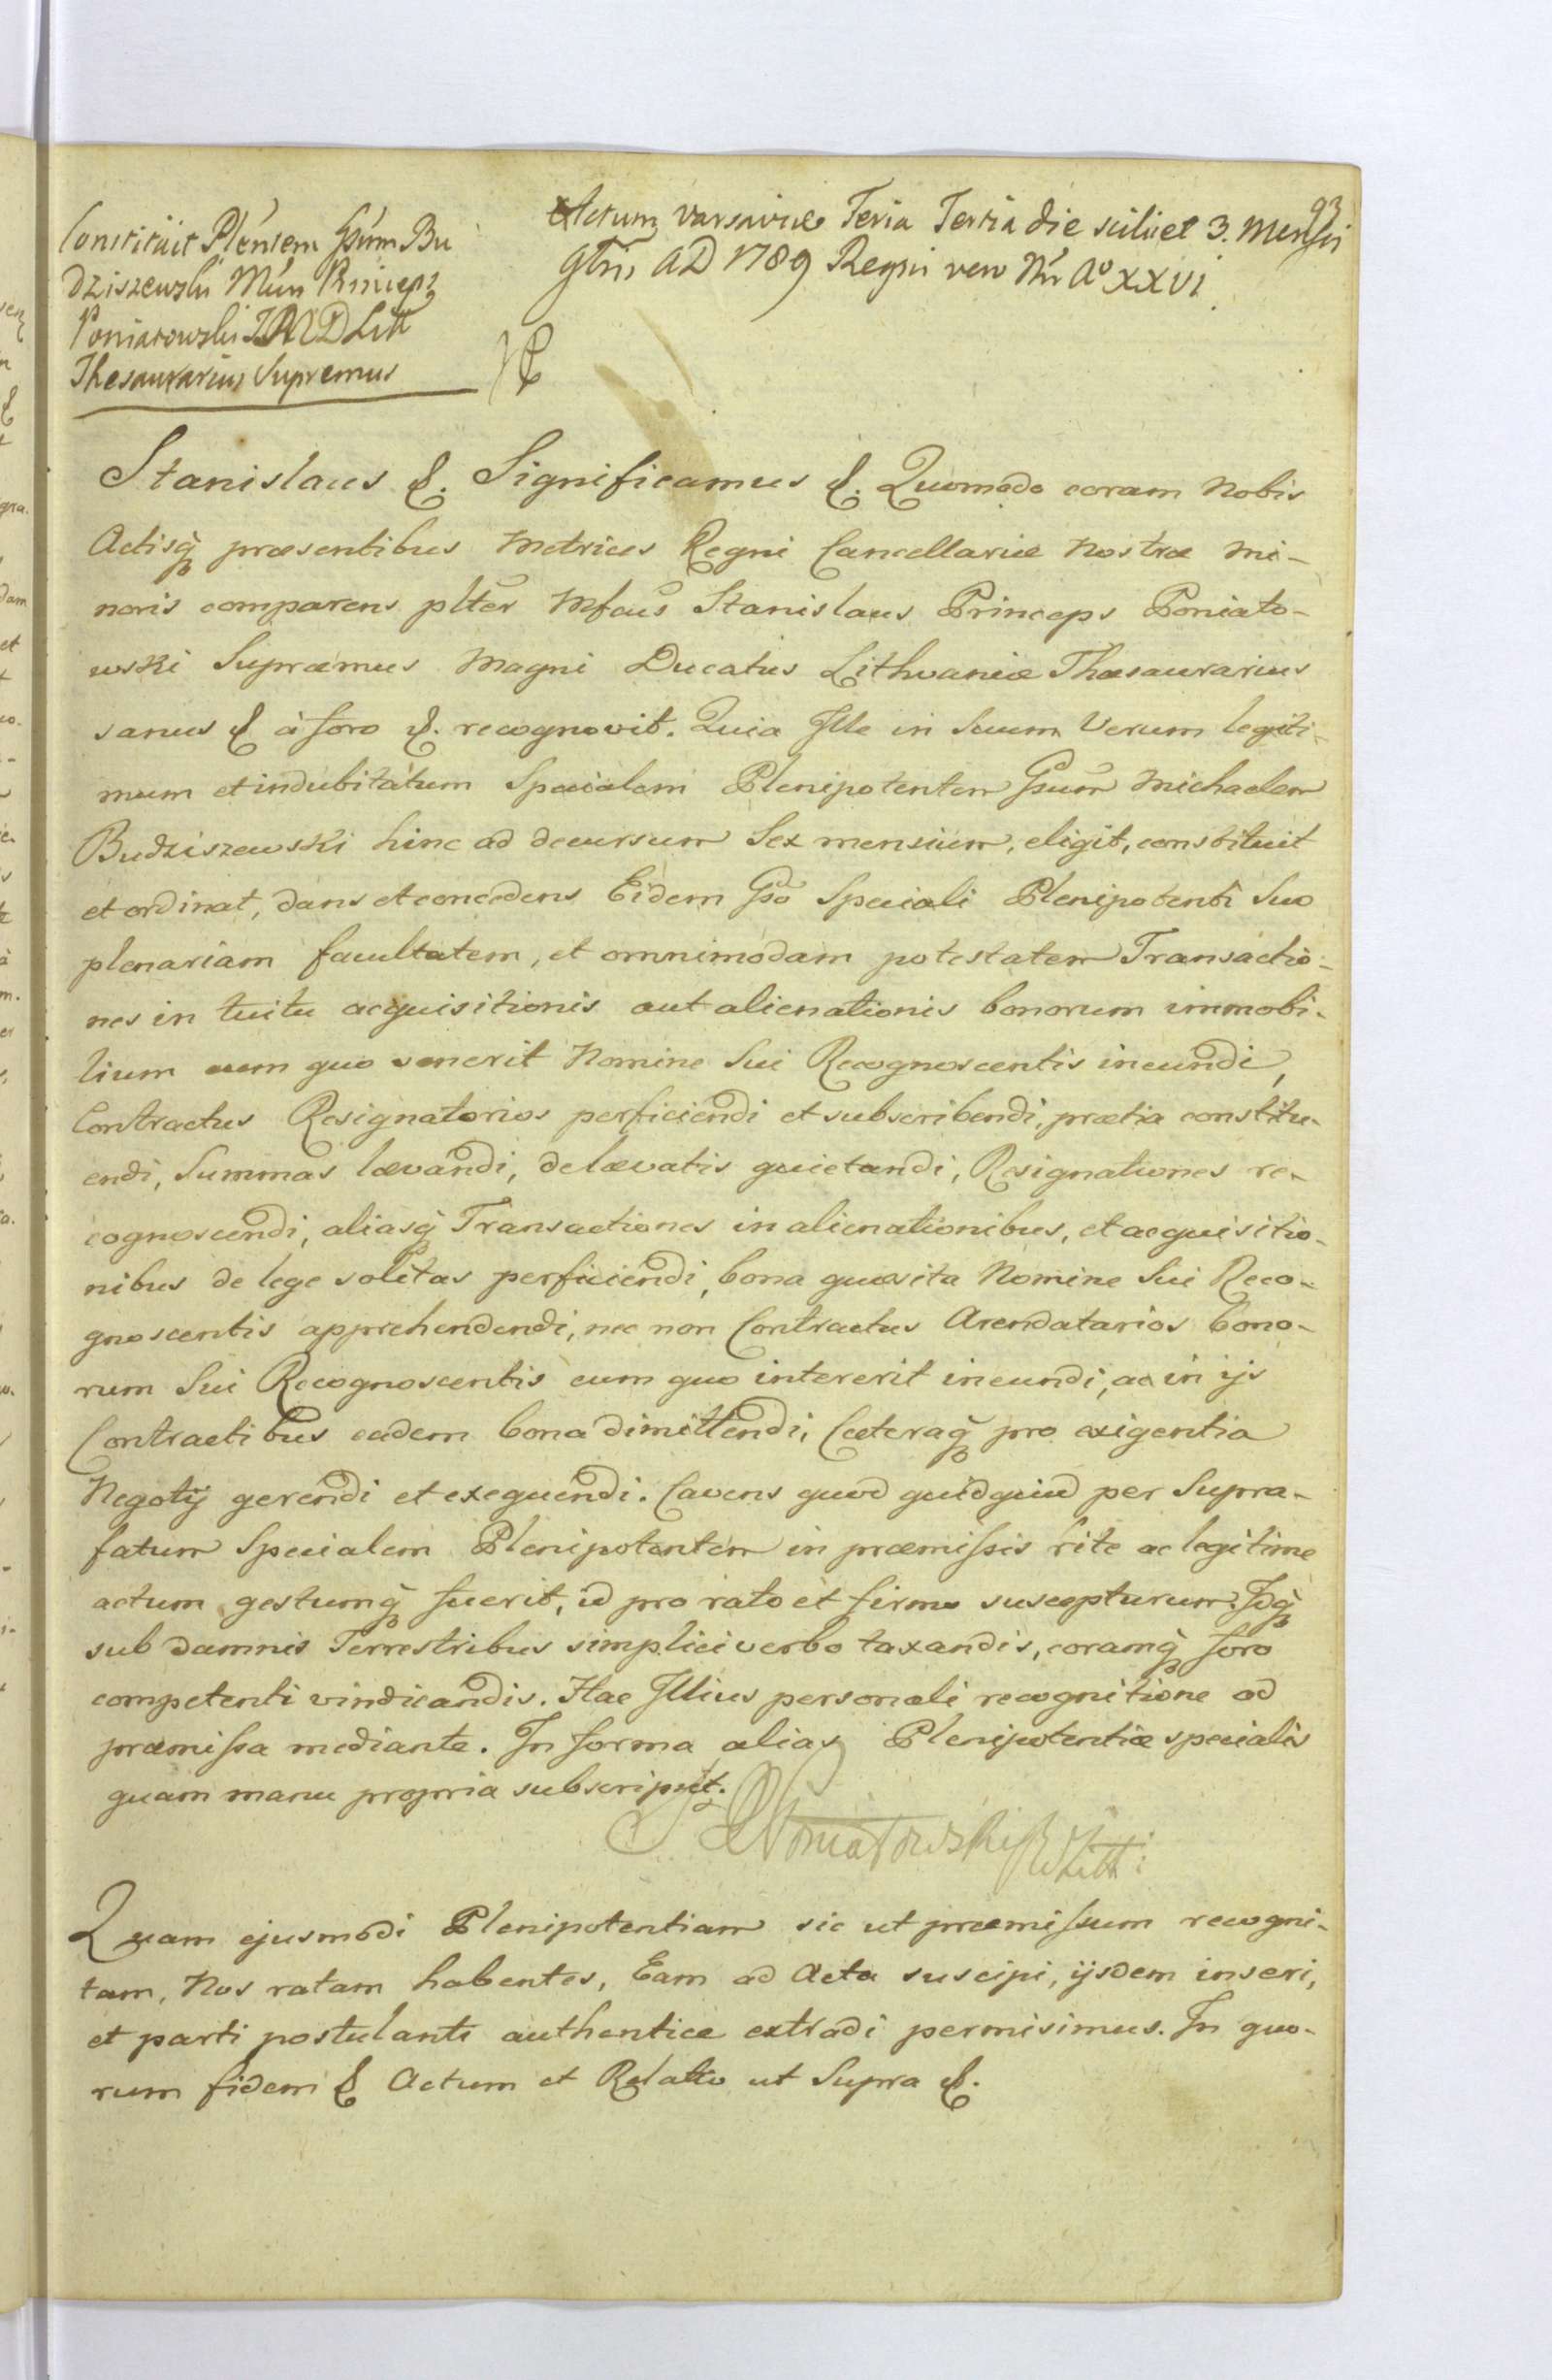 93
Actum Varsaviæ Feria Tertia die scilicet 3. Mensis
AD 1789 Regni vero Nri Aº XXVI
Constituit Plentem Gsum Bu
dziszewski Princeps
Poniatowski MDLitt
Thesaurarius Supremus
Stanislaus &. Significamus &. Quomodo coram Nobis
Actisq præsentibus Metrices Regni Cancellariæ Nostræ Mi-
noris comparens plter Mfcus Stanislaus Princeps Poniato-
wski Supræmus Magni Ducatus Lithvaniæ Thæsaurarius
sanus & à foro &. recognovit. Quia Ille in Suum Verum legiti-
mum et indubitatum Specialem Plenipotentem Gsum Michaelem
Budziszewski hinc ad decursum Sex mensium, eligit, constituit
et ordinat, dans et concedens Eidem Gso Speciali Plenipotenti Suo
plenariam facultatem, et omnimodam potestatem Transactio-
nes in tuitu acquisitionis aut alienationis bonorum immobi-
lium cum quo venerit Nomine Sui Recognoscentis ineundi,
Contractus Resignatorios perficiendi et subscribendi, prætia constitu-
endi, Summas lævandi, de lævatis quietandi, Resignationes re-
cognoscendi, aliasq Transactiones in alienationibus, et acquisitio-
nibus de lege solitas perficiendi, bona quæsita Nomine Sui Reco-
gnoscentis apprehendendi, nec non Contractus Arendatarios bono-
rum Sui Recognoscentis cum quo intererit ineundi, ac in ijs
Contractibus eadem bona dimittendi, Cæteraq pro exigentia
Negotij gerendi et exequendi. Cavens quod quidquid per Supra-
fatum Specialem Plenipotentem in præmissis rite ac legitime
actum gestumq fuerit, id pro rato et firmo suscepturum. Idq
sub damnis Terrestribus simplici verbo taxandis, coramq foro
competenti vindicandis. Hac Illius personali recognitione ad
præmissa mediante. In forma alias Plenipotentiæ specialis
quam manu propria subscripsit.
S. P Poniatowski Litt:
Quam ejusmodi Plenipotentiam sic ut præmissum recogni-
tam, Nos ratam habentes, Eam ad Acta suscipi, ijsdem inseri,
et parti postulanti authentice extradi permisimus. In quo-
rum fidem & Actum et Relatio ut Supra &.